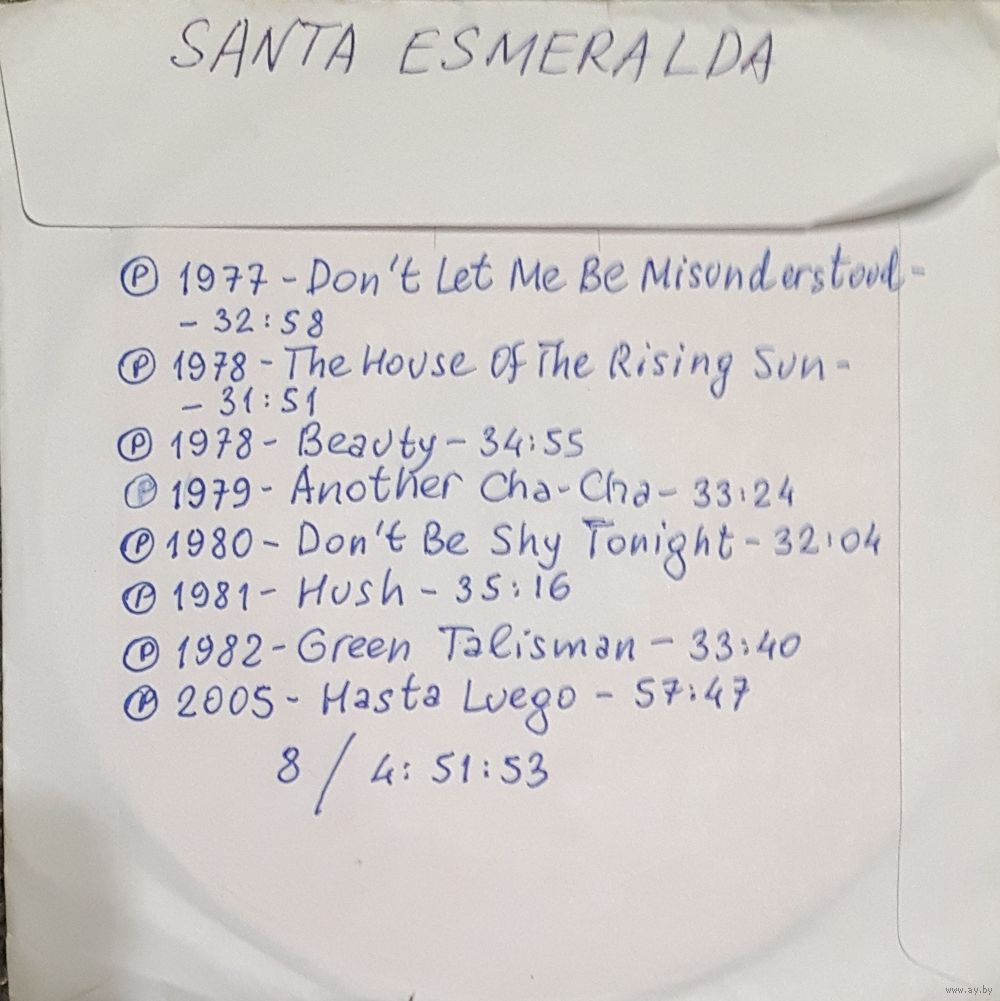 SANTA ESMERALDA
Ⓟ 1977 - Don't Let Me Be Misunderstood -
- 32:58
Ⓟ 1978 - The House Of The Rising Sun -
- 31:51
Ⓟ 1978 - Beauty - 34:55
Ⓟ 1979 - Another Cha-Cha - 33:24
Ⓟ 1980 - Don't Be Shy Tonight - 32:04
Ⓟ 1981 - Hush - 35:16
Ⓟ 1982 - Green Talisman - 33:40
Ⓟ 2005 - Hasta Luego - 57:47
8 / 4:51:53
www.ay.by